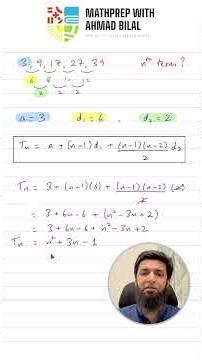 MATHPREP WITH
AHMAD BILAL
3, 9, 17, 27, 39 nth term ?
6 8 10 12
2 2 2
a = 3 d₁ = 6 d₂ = 2
Tn = a + (n-1)d₁ + (n-1)(n-2) d₂ / 2
Tn = 3 + (n-1)(6) + (n-1)(n-2) (2) / 2
= 3 + 6n - 6 + (n² - 3n + 2)
= 3 + 6n - 6 + n² - 3n + 2
Tn = n² + 3n - 1